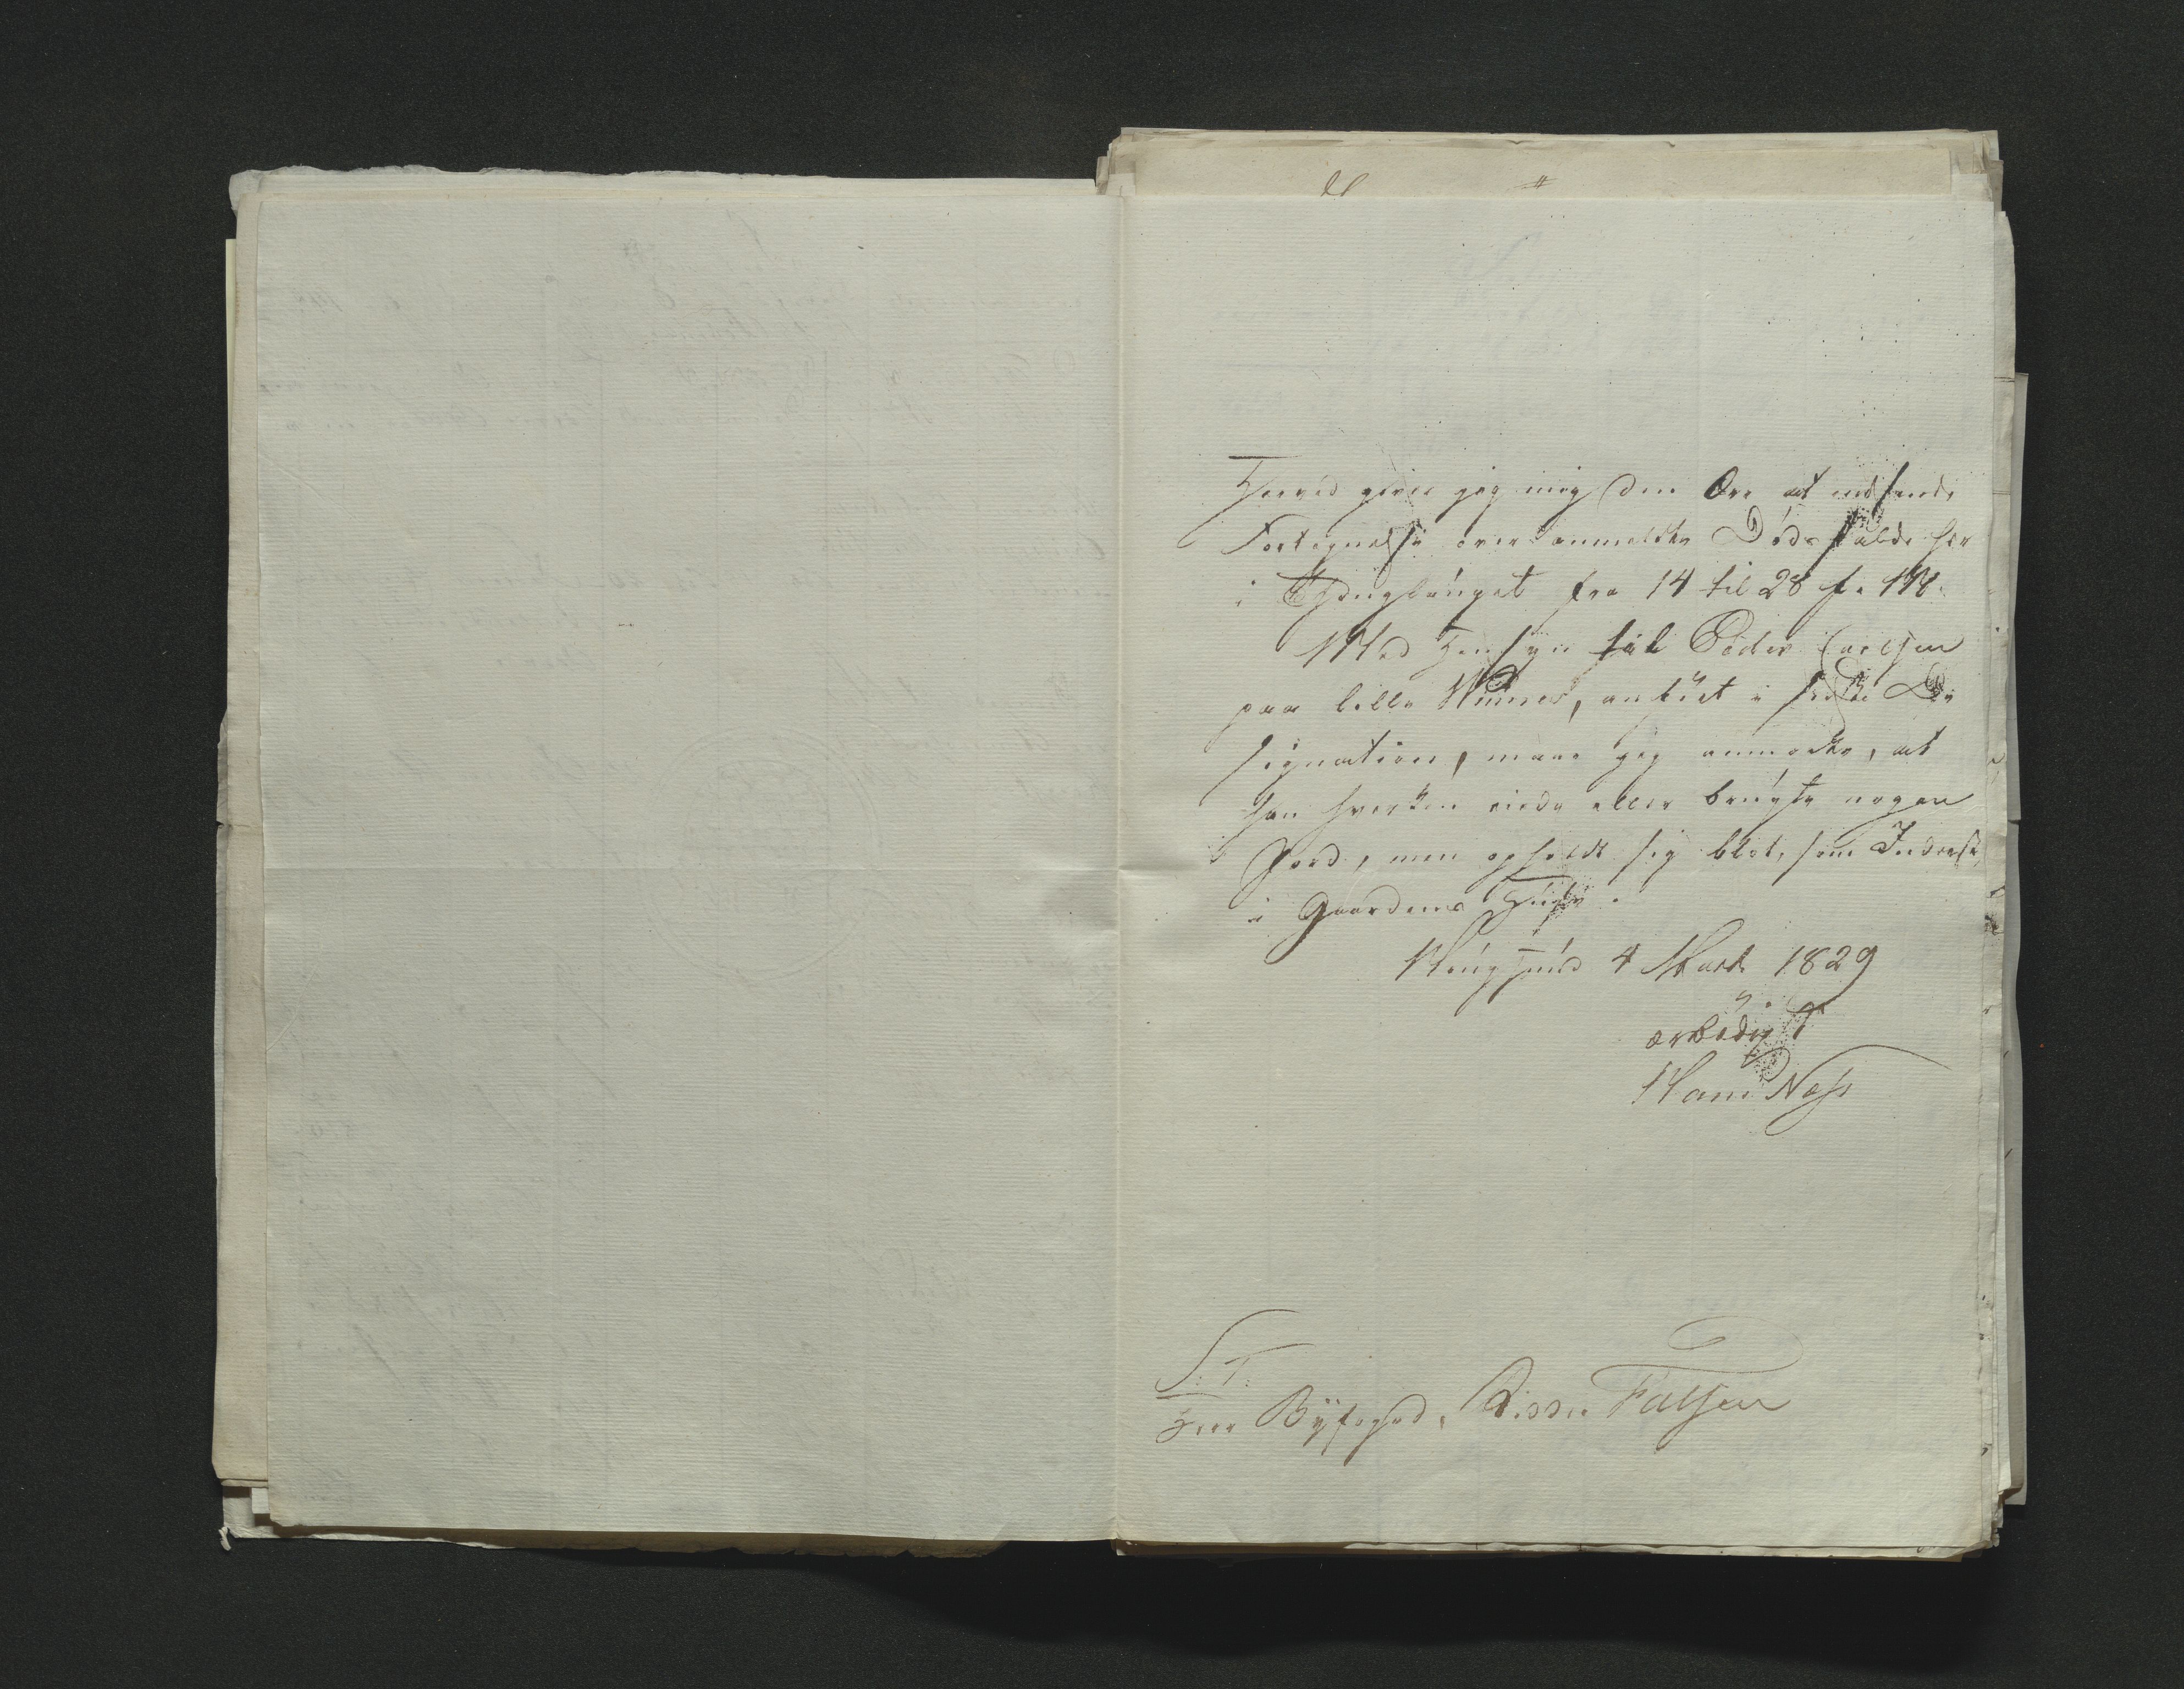 Herved giver jeg mig den Ære at indsende
Fortegnelse over anmeldte Dødsfalde her
i Thinglauget fra 14 til 28 f. M.
Med Hensyn til Peder Carlsen
paa lille anført i sidste De
signation, maae jeg anmærke, at
han hverken eiede eller brugte nogen
Jord, men opholdt sig blot, som Inderst
i Gaardens Huse.
4 Marts 1829
ærbødigst
Næss
S. T.
Herr Byfoged, Falsen